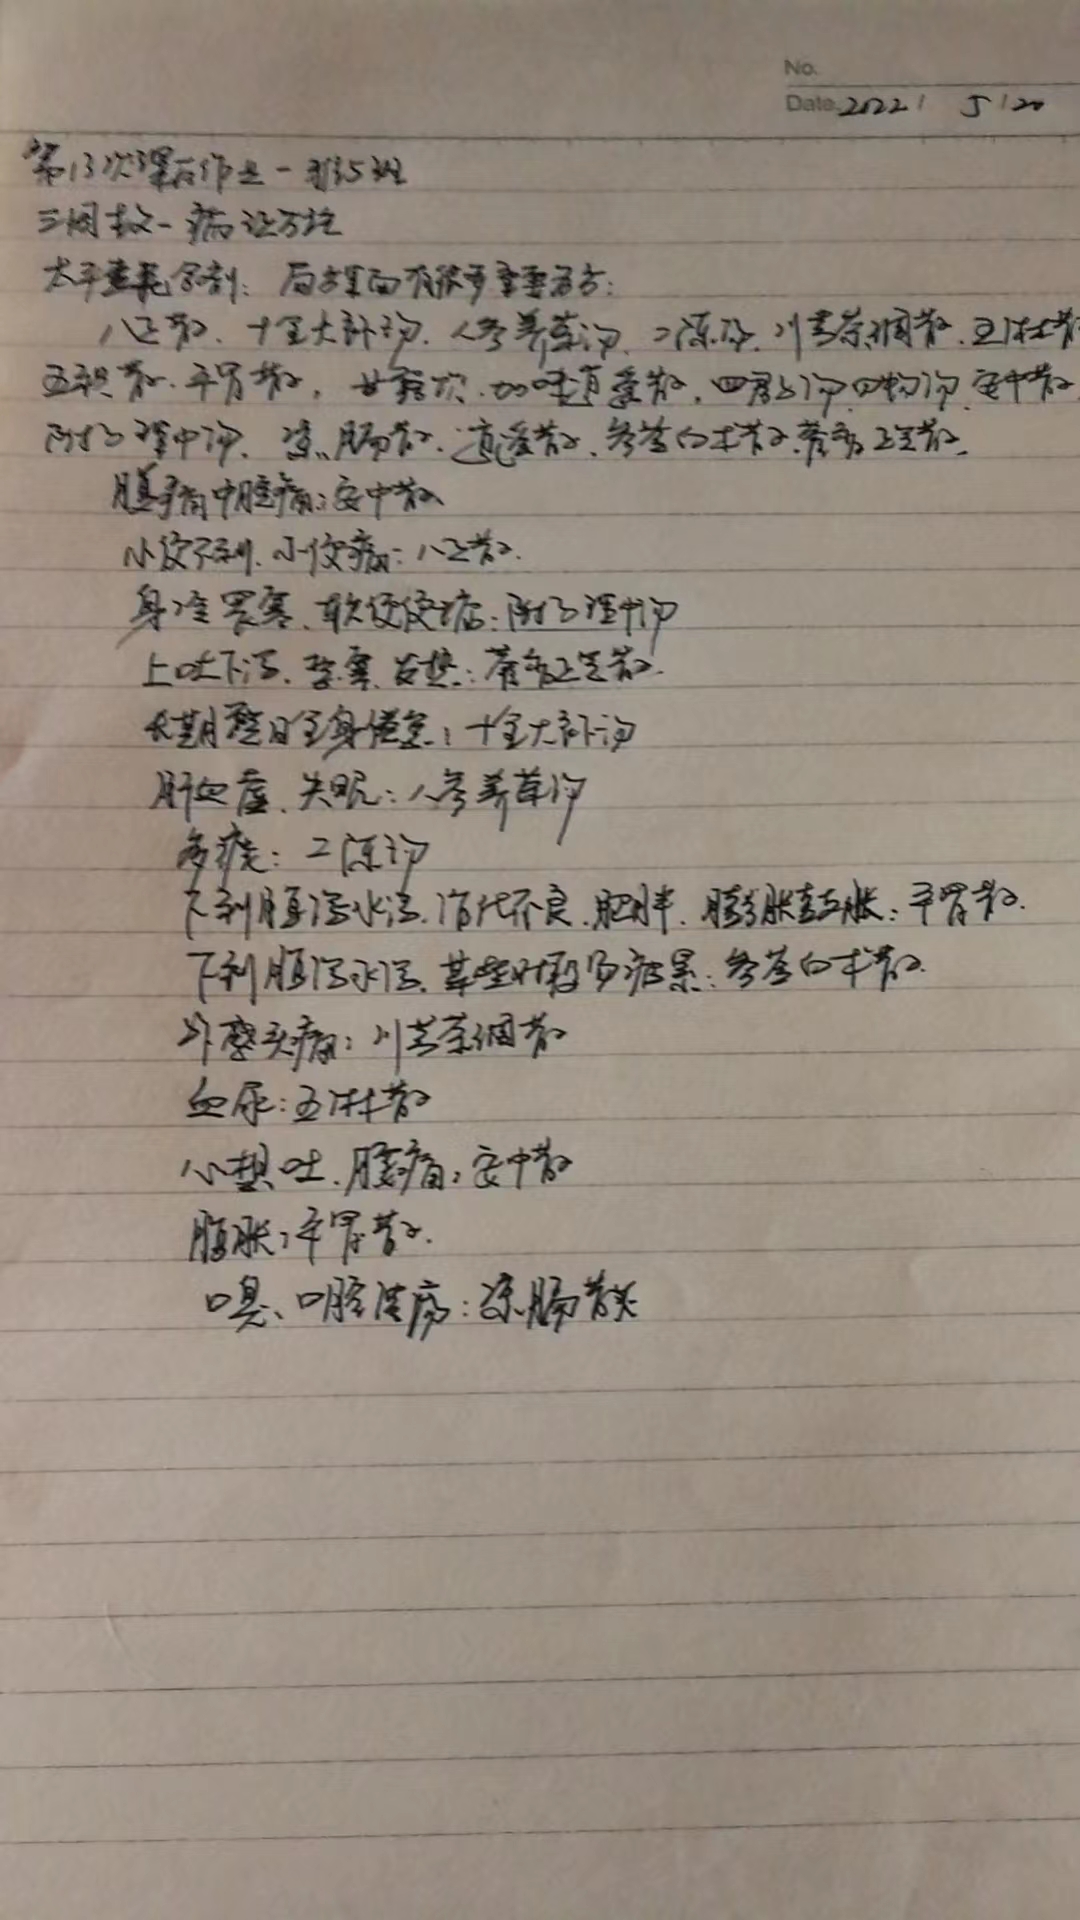 No.
Date 2022 / 5 / 20
第13次课后作业一 35班
三因散一病证方论
太平惠民合剂：局方里面有很多重要名方：
八正散、十全大补汤、人参养荣汤、二陈汤、川芎茶调散、五淋散
五积散、平胃散、甘露饮、加味逍遥散、四君子汤、四物汤、安中散、
附子理中汤、凉膈散、逍遥散、参苓白术散、藿香正气散。
腹痛中腔痛：安中散
小便不利、小便痛：八正散.
身冷畏寒、软便便溏：附子理中汤
上吐下泻、恶寒、发热：藿香正气散.
长期整日全身倦怠：十全大补汤
肝血虚、失眠：人参养荣汤
多痰：二陈汤
下利腹泻水泻、消化不良、肥胖、膨胀鼓胀：平胃散.
下利腹泻水泻、某些时段易疲累：参苓白术散.
外感头痛：川芎茶调散
血尿：五淋散
心想吐、腹痛：安中散
腹胀：平胃散.
口臭、口腔溃疡：凉膈散